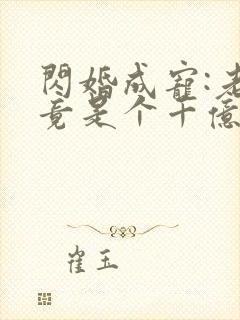 閃婚成寵:老
竟是个千億
崔玉